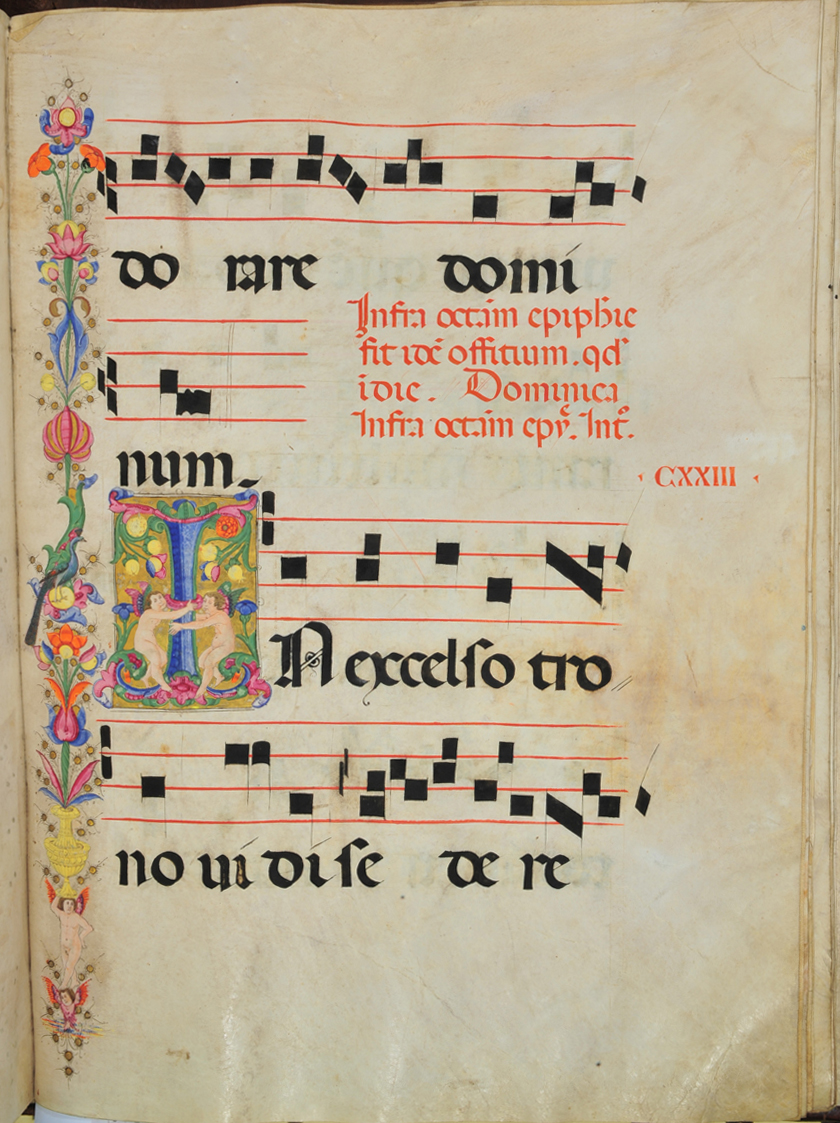 do rare domi
Infra octam epiphie
fit idē offitium . qd
i die . Dominica
Infra octam epy. Int.
num.
· CXXIII ·
IN excelso tro
no uidi se de re